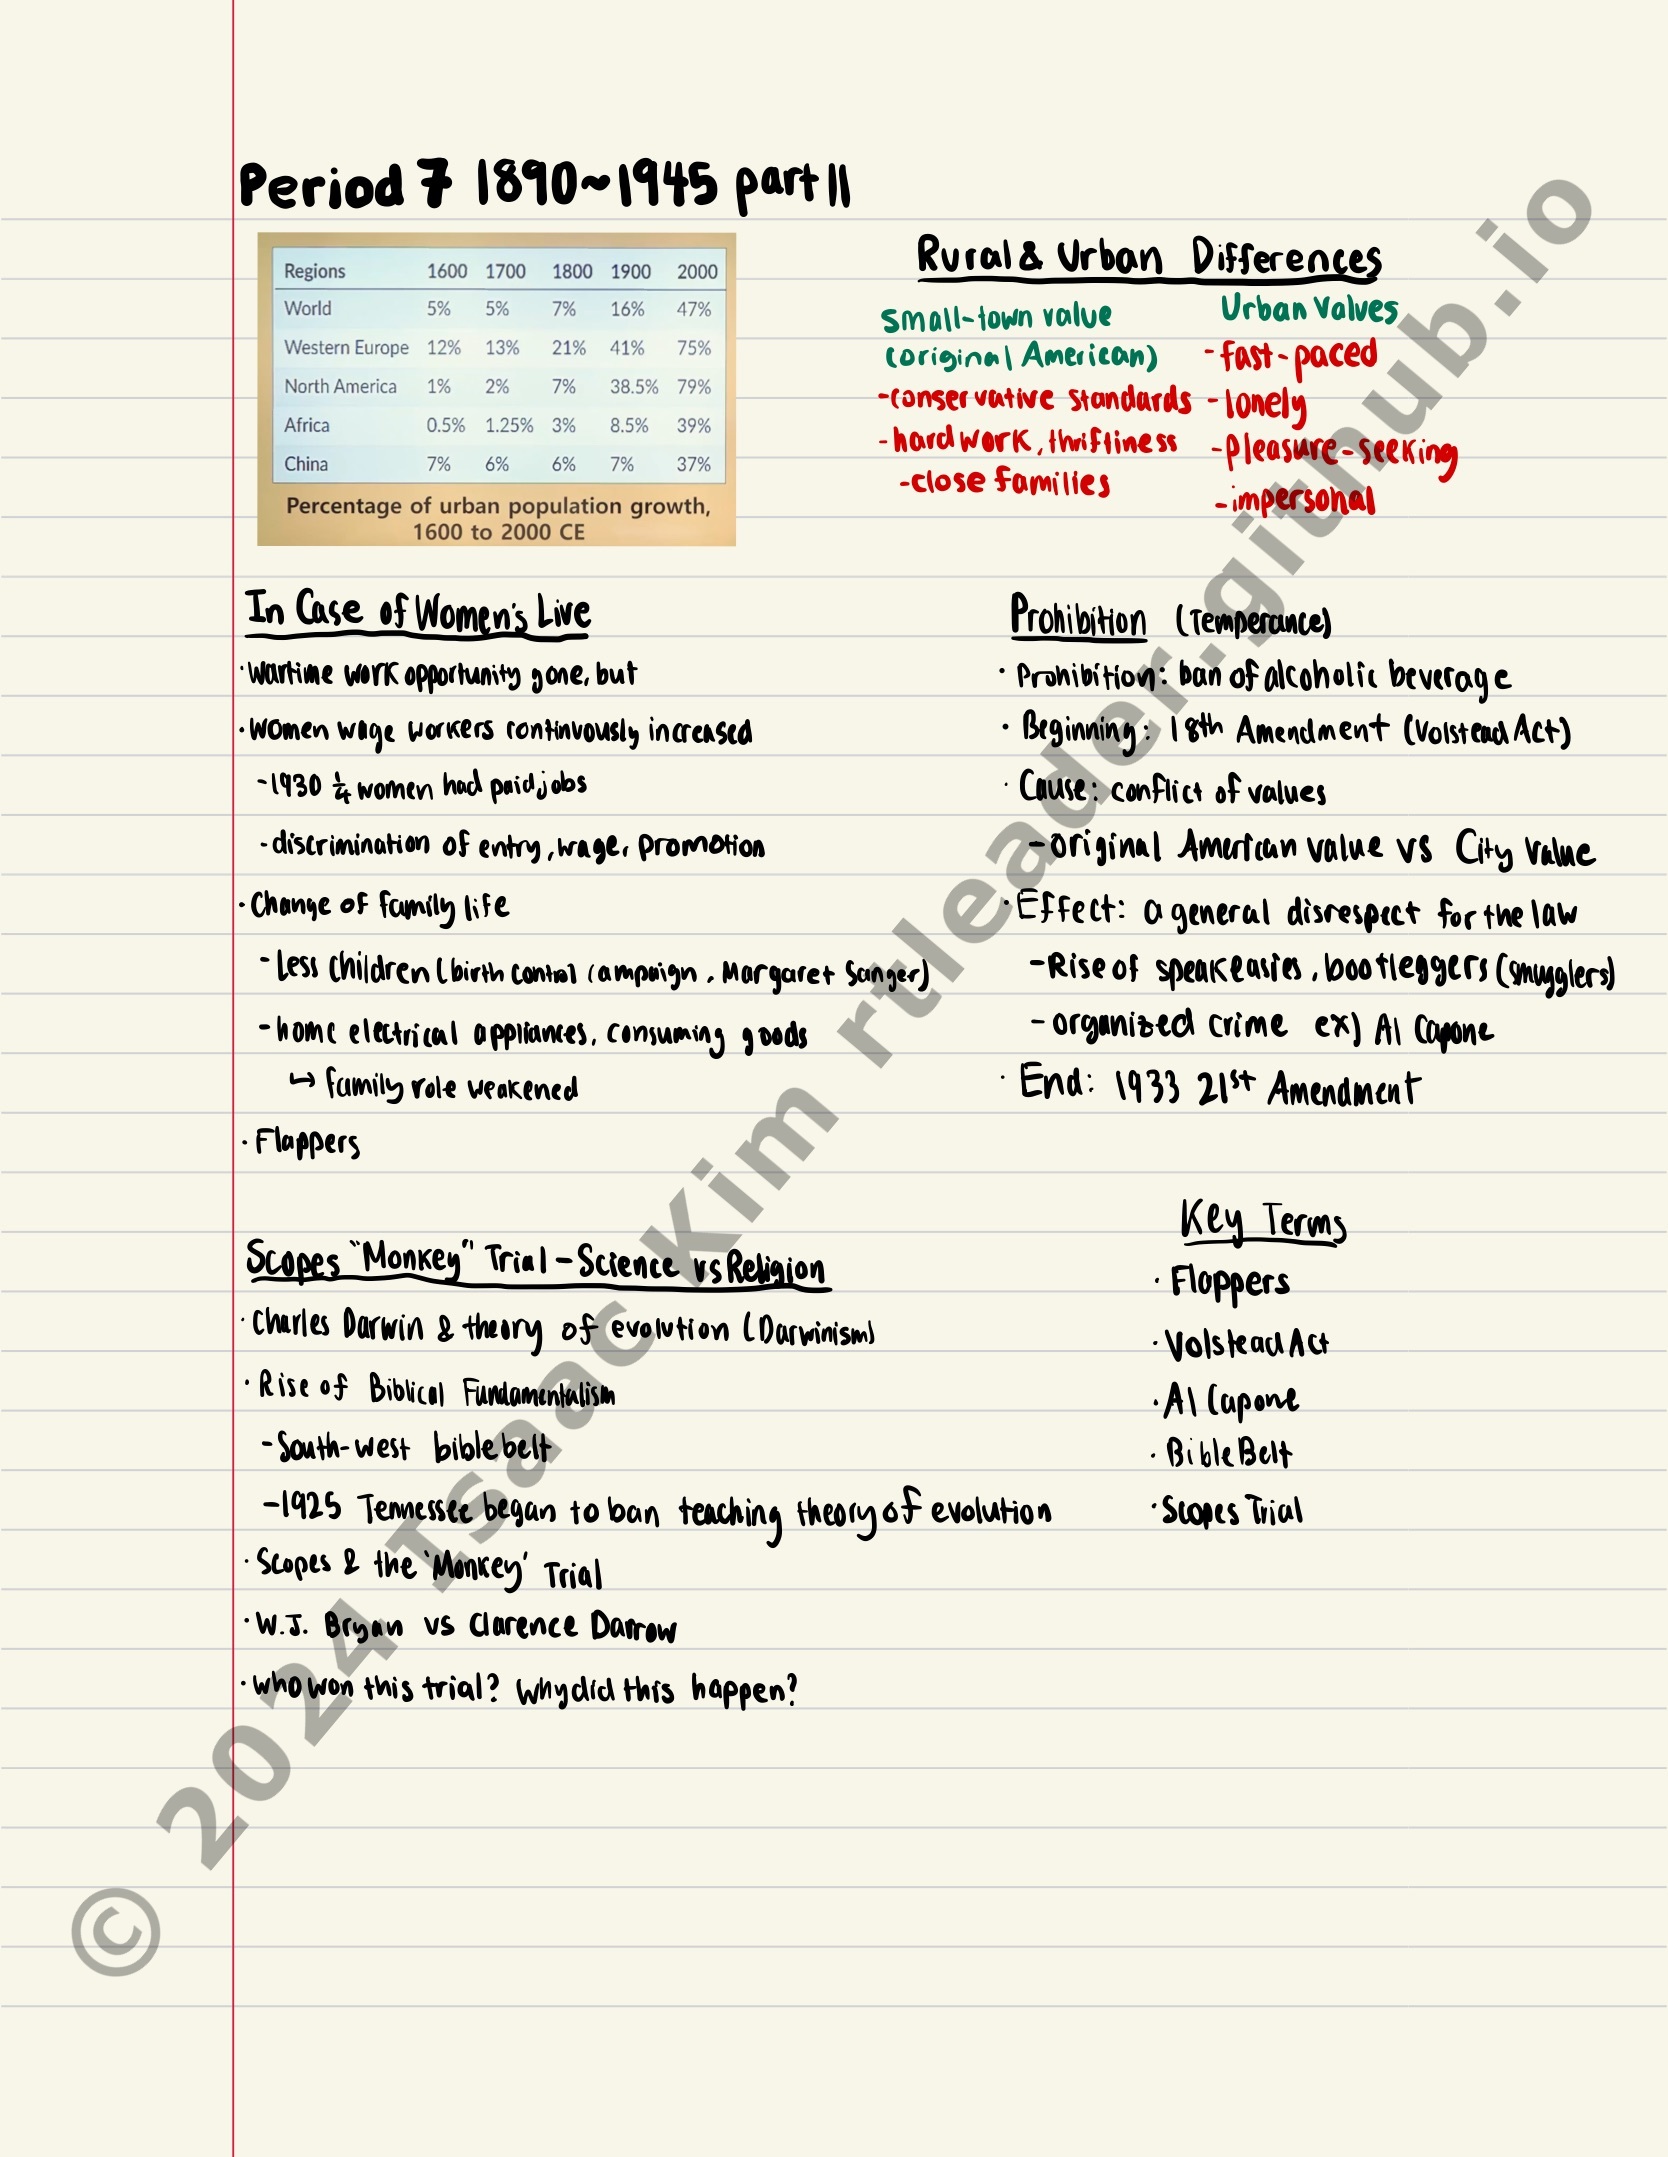 Period 7 1890~1945 part II
Regions 1600 1700 1800 1900 2000
World 5% 5% 7% 16% 47%
Western Europe 12% 13% 21% 41% 75%
North America 1% 2% 7% 38.5% 79%
Africa 0.5% 1.25% 3% 8.5% 39%
China 7% 6% 6% 7% 37%
Percentage of urban population growth,
1600 to 2000 CE
Rural & Urban Differences
Small-town value
(original American)
-conservative standards
-hard work, thriftiness
-close families
Urban Values
-fast-paced
-lonely
-pleasure-seeking
-impersonal
In Case of Women's Live
·Wartime work opportunity gone, but
·Women wage workers continuously increased
-1930 ¼ women had paid jobs
-discrimination of entry, wage, promotion
·Change of family life
-Less children (birth control campaign, Margaret Sanger)
-home electrical appliances, consuming goods
↳ family role weakened
·Flappers
Prohibition (Temperance)
·Prohibition: ban of alcoholic beverage
·Beginning: 18th Amendment (Volstead Act)
·Cause: conflict of values
-original American value vs City value
·Effect: a general disrespect for the law
-Rise of speakeasies, bootleggers (smugglers)
-organized crime ex) Al Capone
·End: 1933 21st Amendment
Scopes "Monkey" Trial - Science vs Religion
·Charles Darwin & theory of evolution (Darwinism)
·Rise of Biblical Fundamentalism
-South-west bible belt
-1925 Tennessee began to ban teaching theory of evolution
·Scopes & the 'Monkey' Trial
·W.J. Bryan vs Clarence Darrow
·who won this trial? Why did this happen?
Key Terms
·Flappers
·Volstead Act
·Al Capone
·Bible Belt
·Scopes Trial
© 2024 Isaac Kim rtleader.github.io